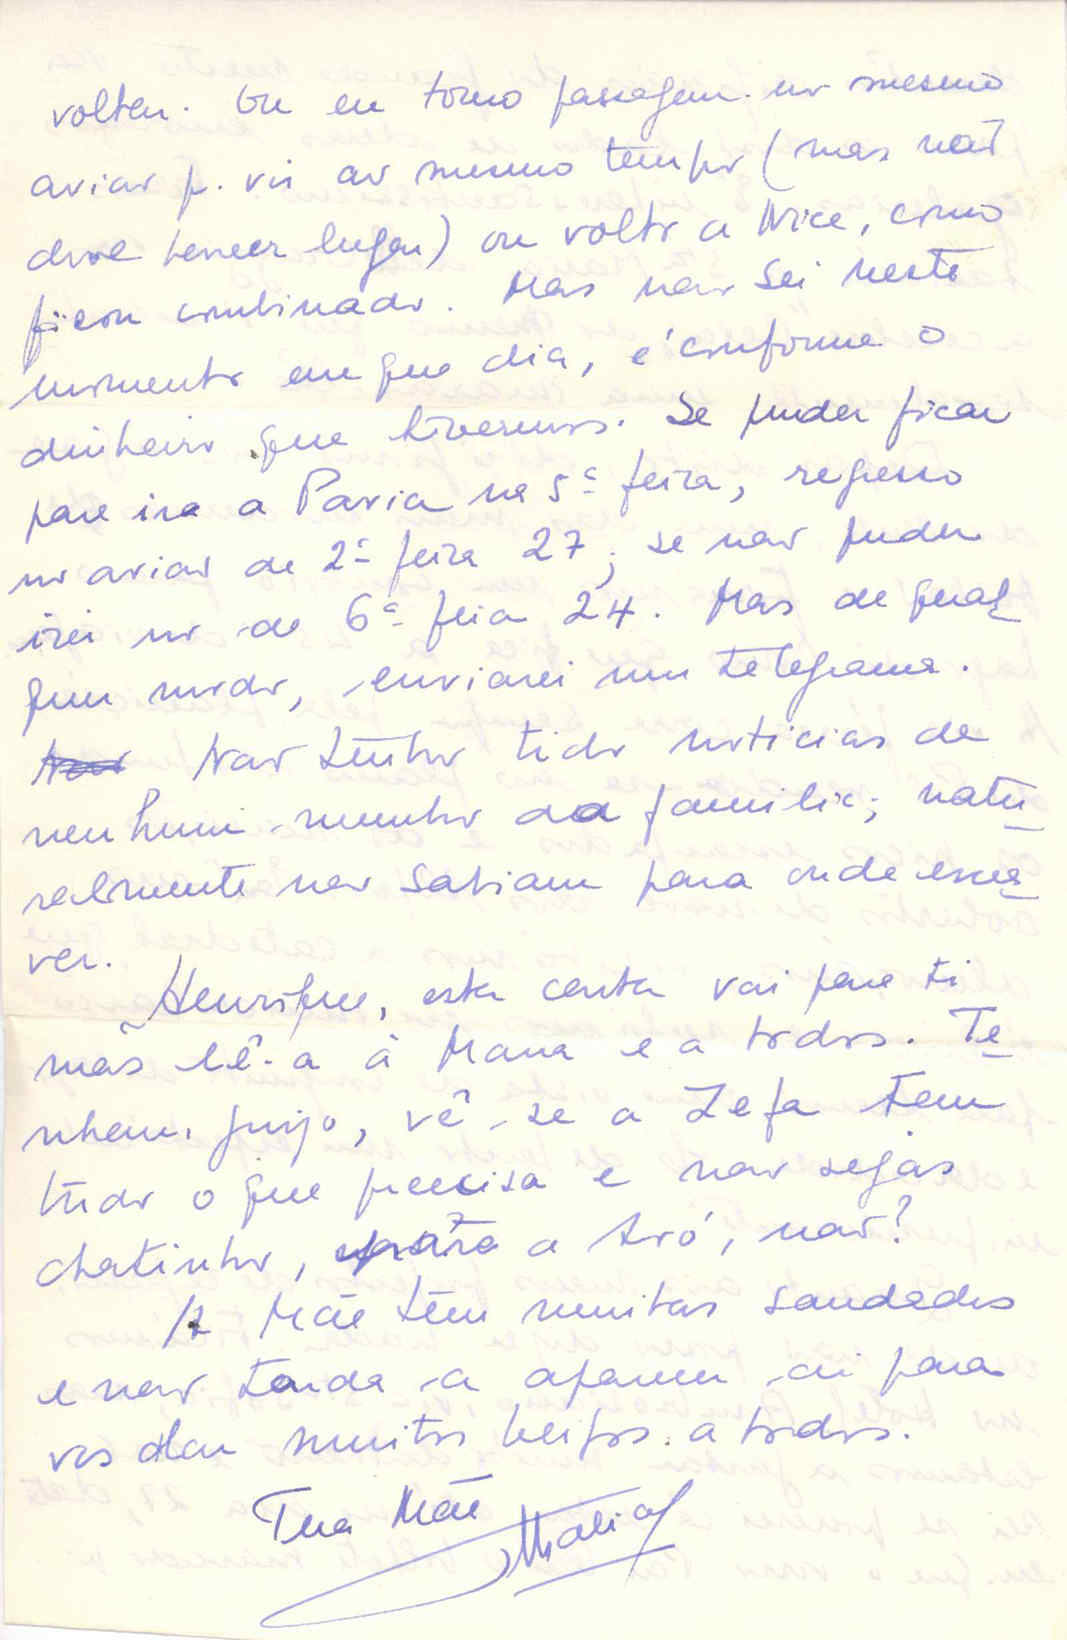 volten. Ou eu tomo passagem no mesmo
aviao p. vir ao mesmo tempo (mas não
deve haver lugar) ou volto a Nice, como
ficou combinado. Mas nao sei neste
momento em que dia, é conforme o
dinheiro que tivermos. Se puder ficar
para ir a Pavia na 5ª feira, regresso
no aviao de 2ª feira 27; se nao puder
irei no de 6ª feira 24. Mas de qual
quer modo, enviarei um telegrama.
Nao tenho tido noticias de
nenhum membro da familia; natu
ralmente nao sabiam para onde escre
ver.
Henrique, esta carta vai para ti
mas lê-a à Mana e a todos. Te
nham juizo, vê se a Zefa tem
tudo o que precisa e nao sejas
chatinho, para a Avó, nao?
A Mãe tem muitas saudades
e nao tarda a aparecer ai para
vos dar muitos beijos a todos.
Tua Mãe